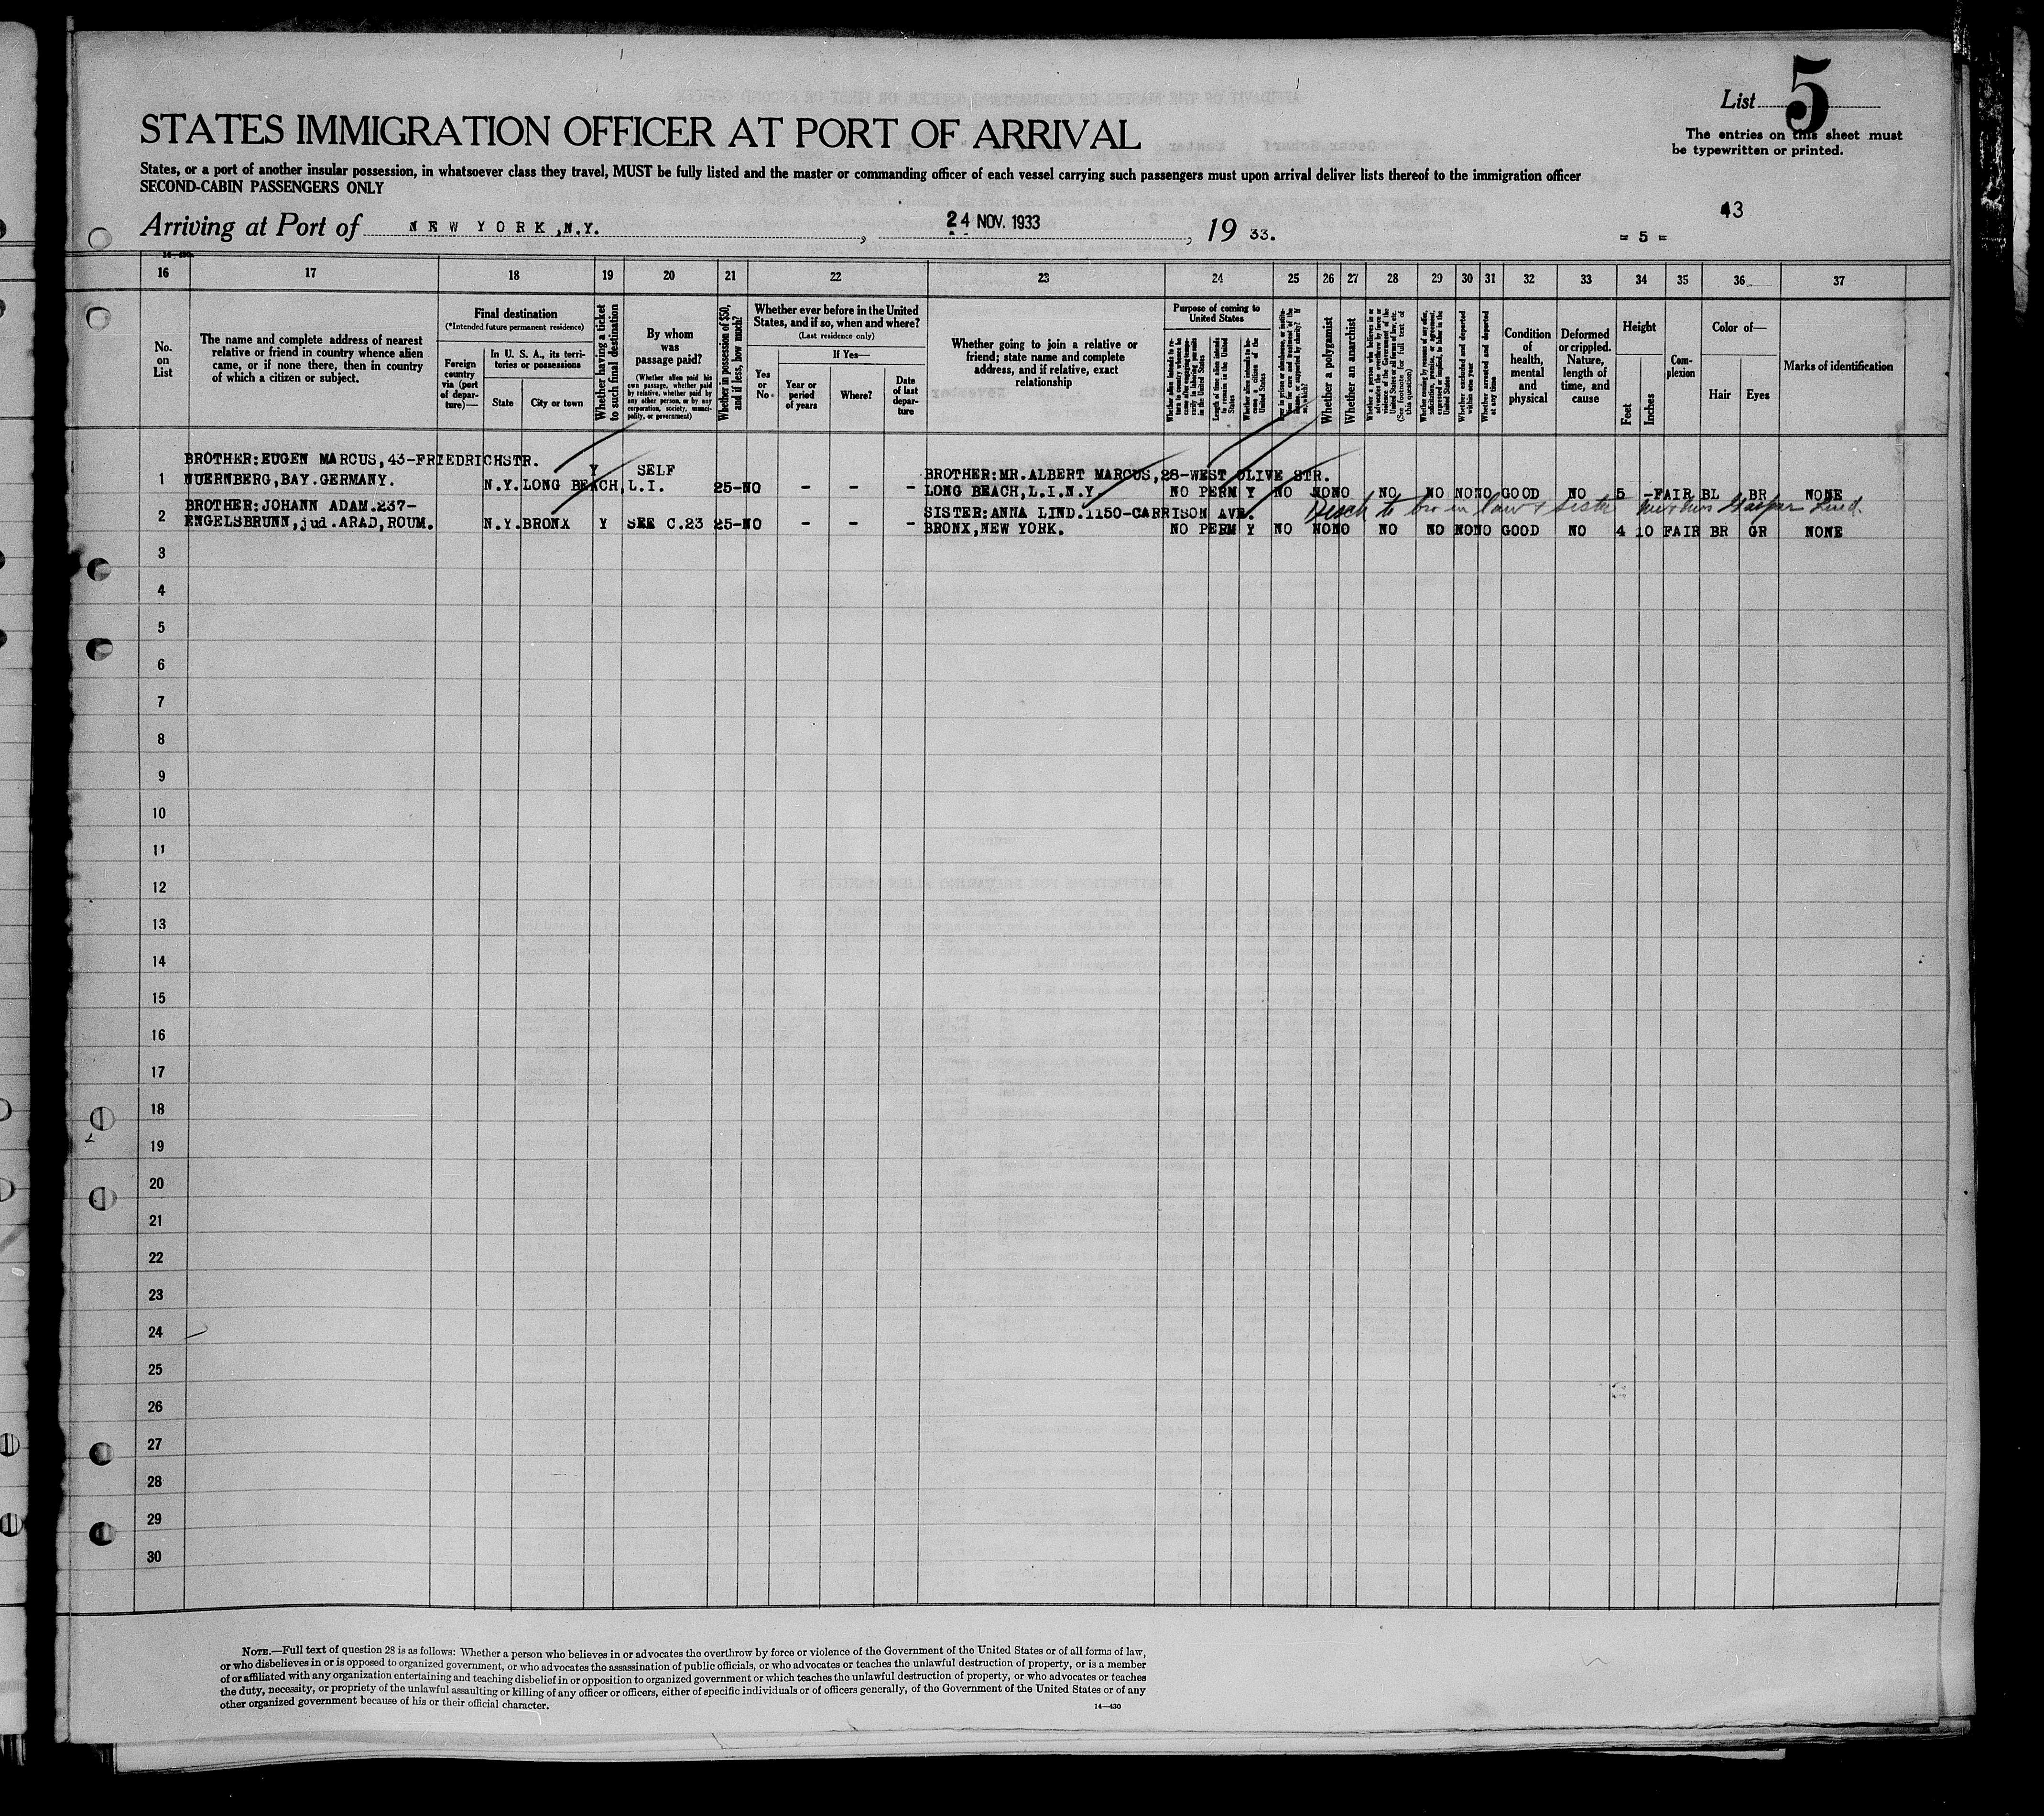 List 5
The entries on this sheet must
be typewritten or printed.
STATES IMMIGRATION OFFICER AT PORT OF ARRIVAL
States, or a port of another insular possession, in whatsoever class they travel, MUST be fully listed and the master or commanding officer of each vessel carrying such passengers must upon arrival deliver lists thereof to the immigration officer
SECOND-CABIN PASSENGERS ONLY
43
Arriving at Port of NEW YORK, N.Y., 24 NOV. 1933, 19 33.
= 5 =
16 17 18 19 20 21 22 23 24 25 26 27 28 29 30 31 32 33 34 35 36 37
No.
on
List
The name and complete address of nearest
relative or friend in country whence alien
came, or if none there, then in country
of which a citizen or subject.
Final destination
(*Intended future permanent residence)
Foreign
country
via (port
of depar-
ture)—
In U. S. A., its terri-
tories or possessions
State
City or town
Whether having a ticket
to such final destination
By whom
was
passage paid?
(Whether alien paid his
own passage, whether paid
by relative, whether paid by
any other person, or by any
corporation, society, munici-
pality, or government)
Whether in possession of $50,
and if less, how much?
Whether ever before in the United
States, and if so, when and where?
(Last residence only)
Yes
or
No
If Yes—
Year or
period
of years
Where?
Date
of last
depar-
ture
Whether going to join a relative or
friend; state name and complete
address, and if relative, exact
relationship
Purpose of coming to
United States
Whether alien intends to re-
turn to country whence he
came after engaging tempo-
rarily in laboring pursuits
in the United States
Length of time alien intends
to remain in the United
States
Whether alien intends to be-
come a citizen of the
United States
Whether a polygamist
Whether an anarchist
Whether a person who believes in or
advocates the overthrow by force or
violence of the Government of the
United States or all forms of law, etc.
(See footnote for full text of
this question)
Whether coming by reasons of any offer,
solicitation, promise, or agreement,
expressed or implied, to labor in the
United States
Whether excluded and deported
within one year
Whether arrested and deported
at any time
Condition
of
health,
mental
and
physical
Deformed
or crippled.
Nature,
length of
time, and
cause
Height
Feet
Inches
Com-
plexion
Color of—
Hair
Eyes
Marks of identification
1 BROTHER:EUGEN MARCUS,43-FRIEDRICHSTR.
NUERNBERG,BAY.GERMANY. N.Y. LONG BEACH,L.I. Y SELF 25-NO - - - BROTHER:MR.ALBERT MARCUS,28-WEST OLIVE STR.
LONG BEACH,L.I.N.Y. NO PERM Y NO NO NO NO NO NO NO GOOD NO 5 - FAIR BL BR NONE
2 BROTHER:JOHANN ADAM.237-
ENGELSBRUNN,jud.ARAD,ROUM. N.Y. BRONX Y SEE C.23 25-NO - - - SISTER:ANNA LIND.1150-CARRISON AVE.
Disch to bro in law & sister Mr & Mrs Gaspar Lind.
BRONX,NEW YORK. NO PERM Y NO NO NO NO NO NO NO GOOD NO 4 10 FAIR BR GR NONE
3
4
5
6
7
8
9
10
11
12
13
14
15
16
17
18
19
20
21
22
23
24
25
26
27
28
29
30
NOTE.—Full text of question 28 is as follows: Whether a person who believes in or advocates the overthrow by force or violence of the Government of the United States or of all forms of law,
or who disbelieves in or is opposed to organized government, or who advocates the assassination of public officials, or who advocates or teaches the unlawful destruction of property, or is a member
of or affiliated with any organization entertaining and teaching disbelief in or opposition to organized government or which teaches the unlawful destruction of property, or who advocates or teaches
the duty, necessity, or propriety of the unlawful assaulting or killing of any officer or officers, either of specific individuals or of officers generally, of the Government of the United States or of any
other organized government because of his or their official character.
14—430